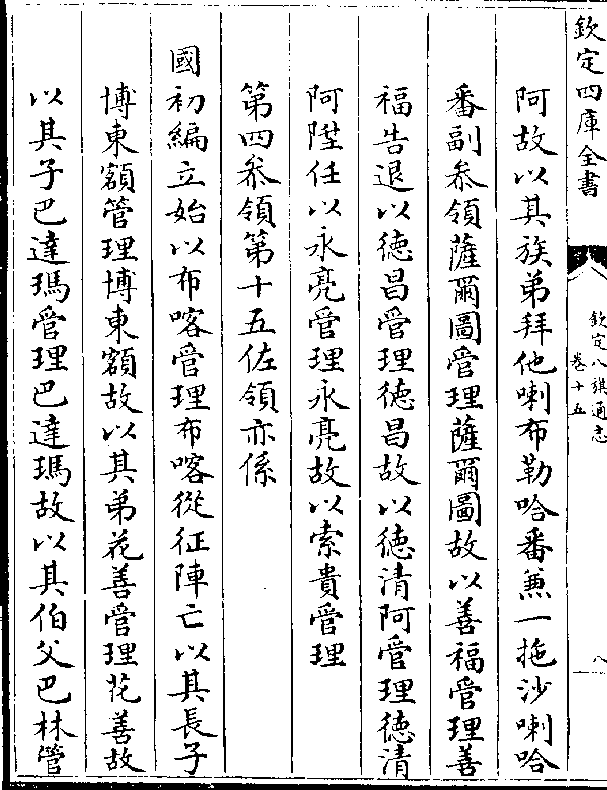 欽定四庫全書
欽定八旗通志
卷十五
八
阿故以其族弟拜他喇布勒哈番兼一拖沙喇哈
番副叅領薩爾圖管理薩爾圖故以善福管理善
福告退以德昌管理德昌故以德清阿管理德清
阿陞任以永亮管理永亮故以索貴管理
第四叅領第十五佐領亦係
國初編立始以布喀管理布喀從征陣亡以其長子
博東額管理博東額故以其弟花善管理花善故
以其子巴達瑪管理巴達瑪故以其伯父巴林管